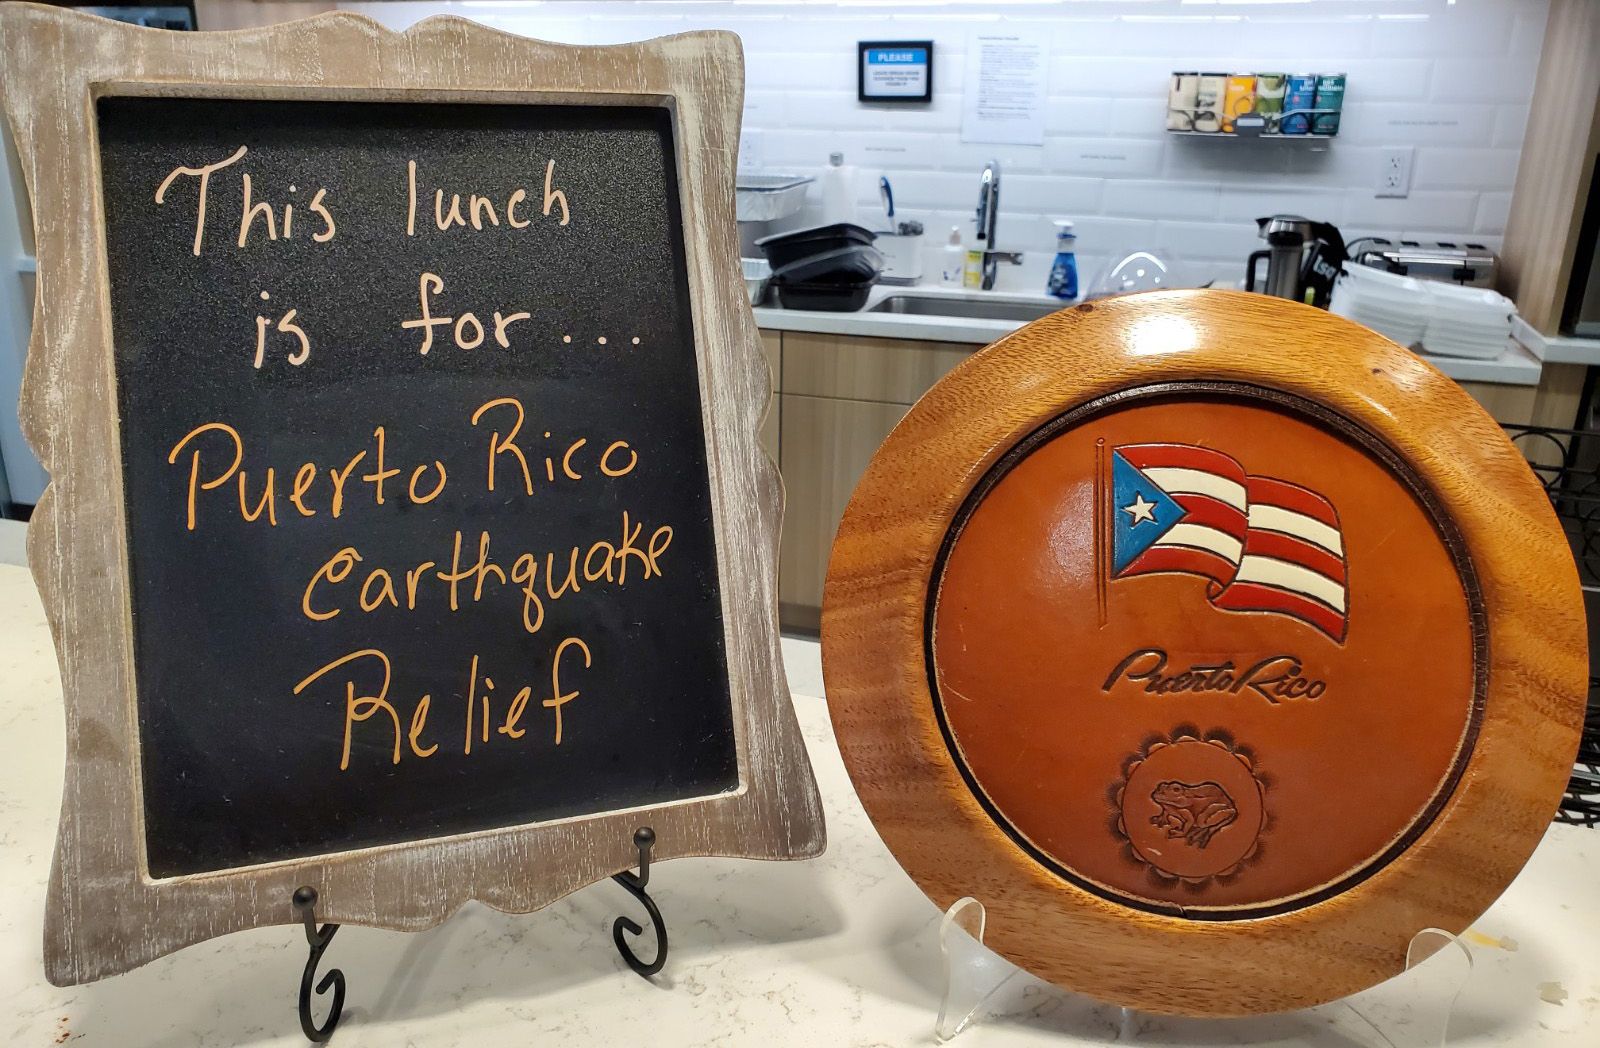 This lunch
is for...
Puerto Rico
Earthquake
Relief
Puerto Rico
PLEASE